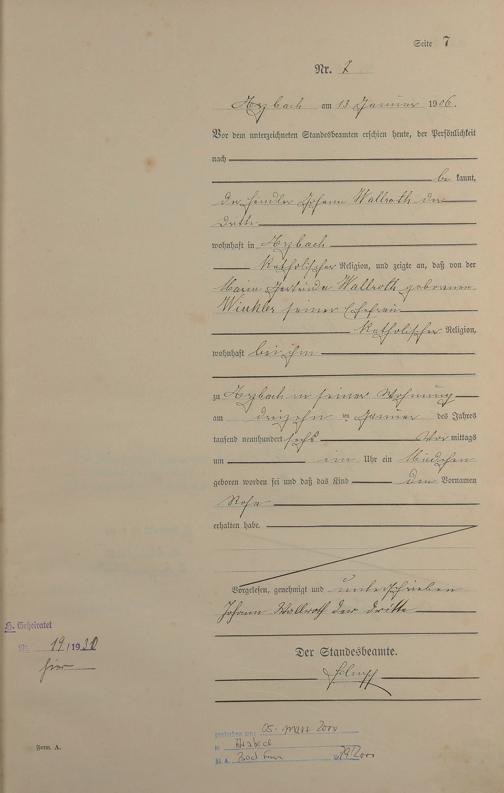 Seite 7
Nr. 7
Atzbach am 13 Januar 1906.
Vor dem unterzeichneten Standesbeamten erschien heute, der Persönlichkeit
nach
be kannt,
der Händler Johann Wallroth der
Dritte
wohnhaft in Atzbach
katholischer Religion, und zeigte an, daß von der
Maria Gertrude Wallroth geborenen
Winkler seiner Ehefrau
katholischer Religion,
wohnhaft bei ihm
zu Atzbach in seiner Wohnung
am dreizehn ten Januar des Jahres
tausend neunhundert sechs Vor mittags
um ein Uhr ein Mädchen
geboren worden sei und daß das Kind den Vornamen
Rosa
erhalten habe.
Vorgelesen, genehmigt und unterschrieben
Johann Wallroth der dritte
Der Standesbeamte.
H. Geheiratet
Nr. 19/1930
hier
Form. A.
gestorben am: 05. März 2000
in
St. A.